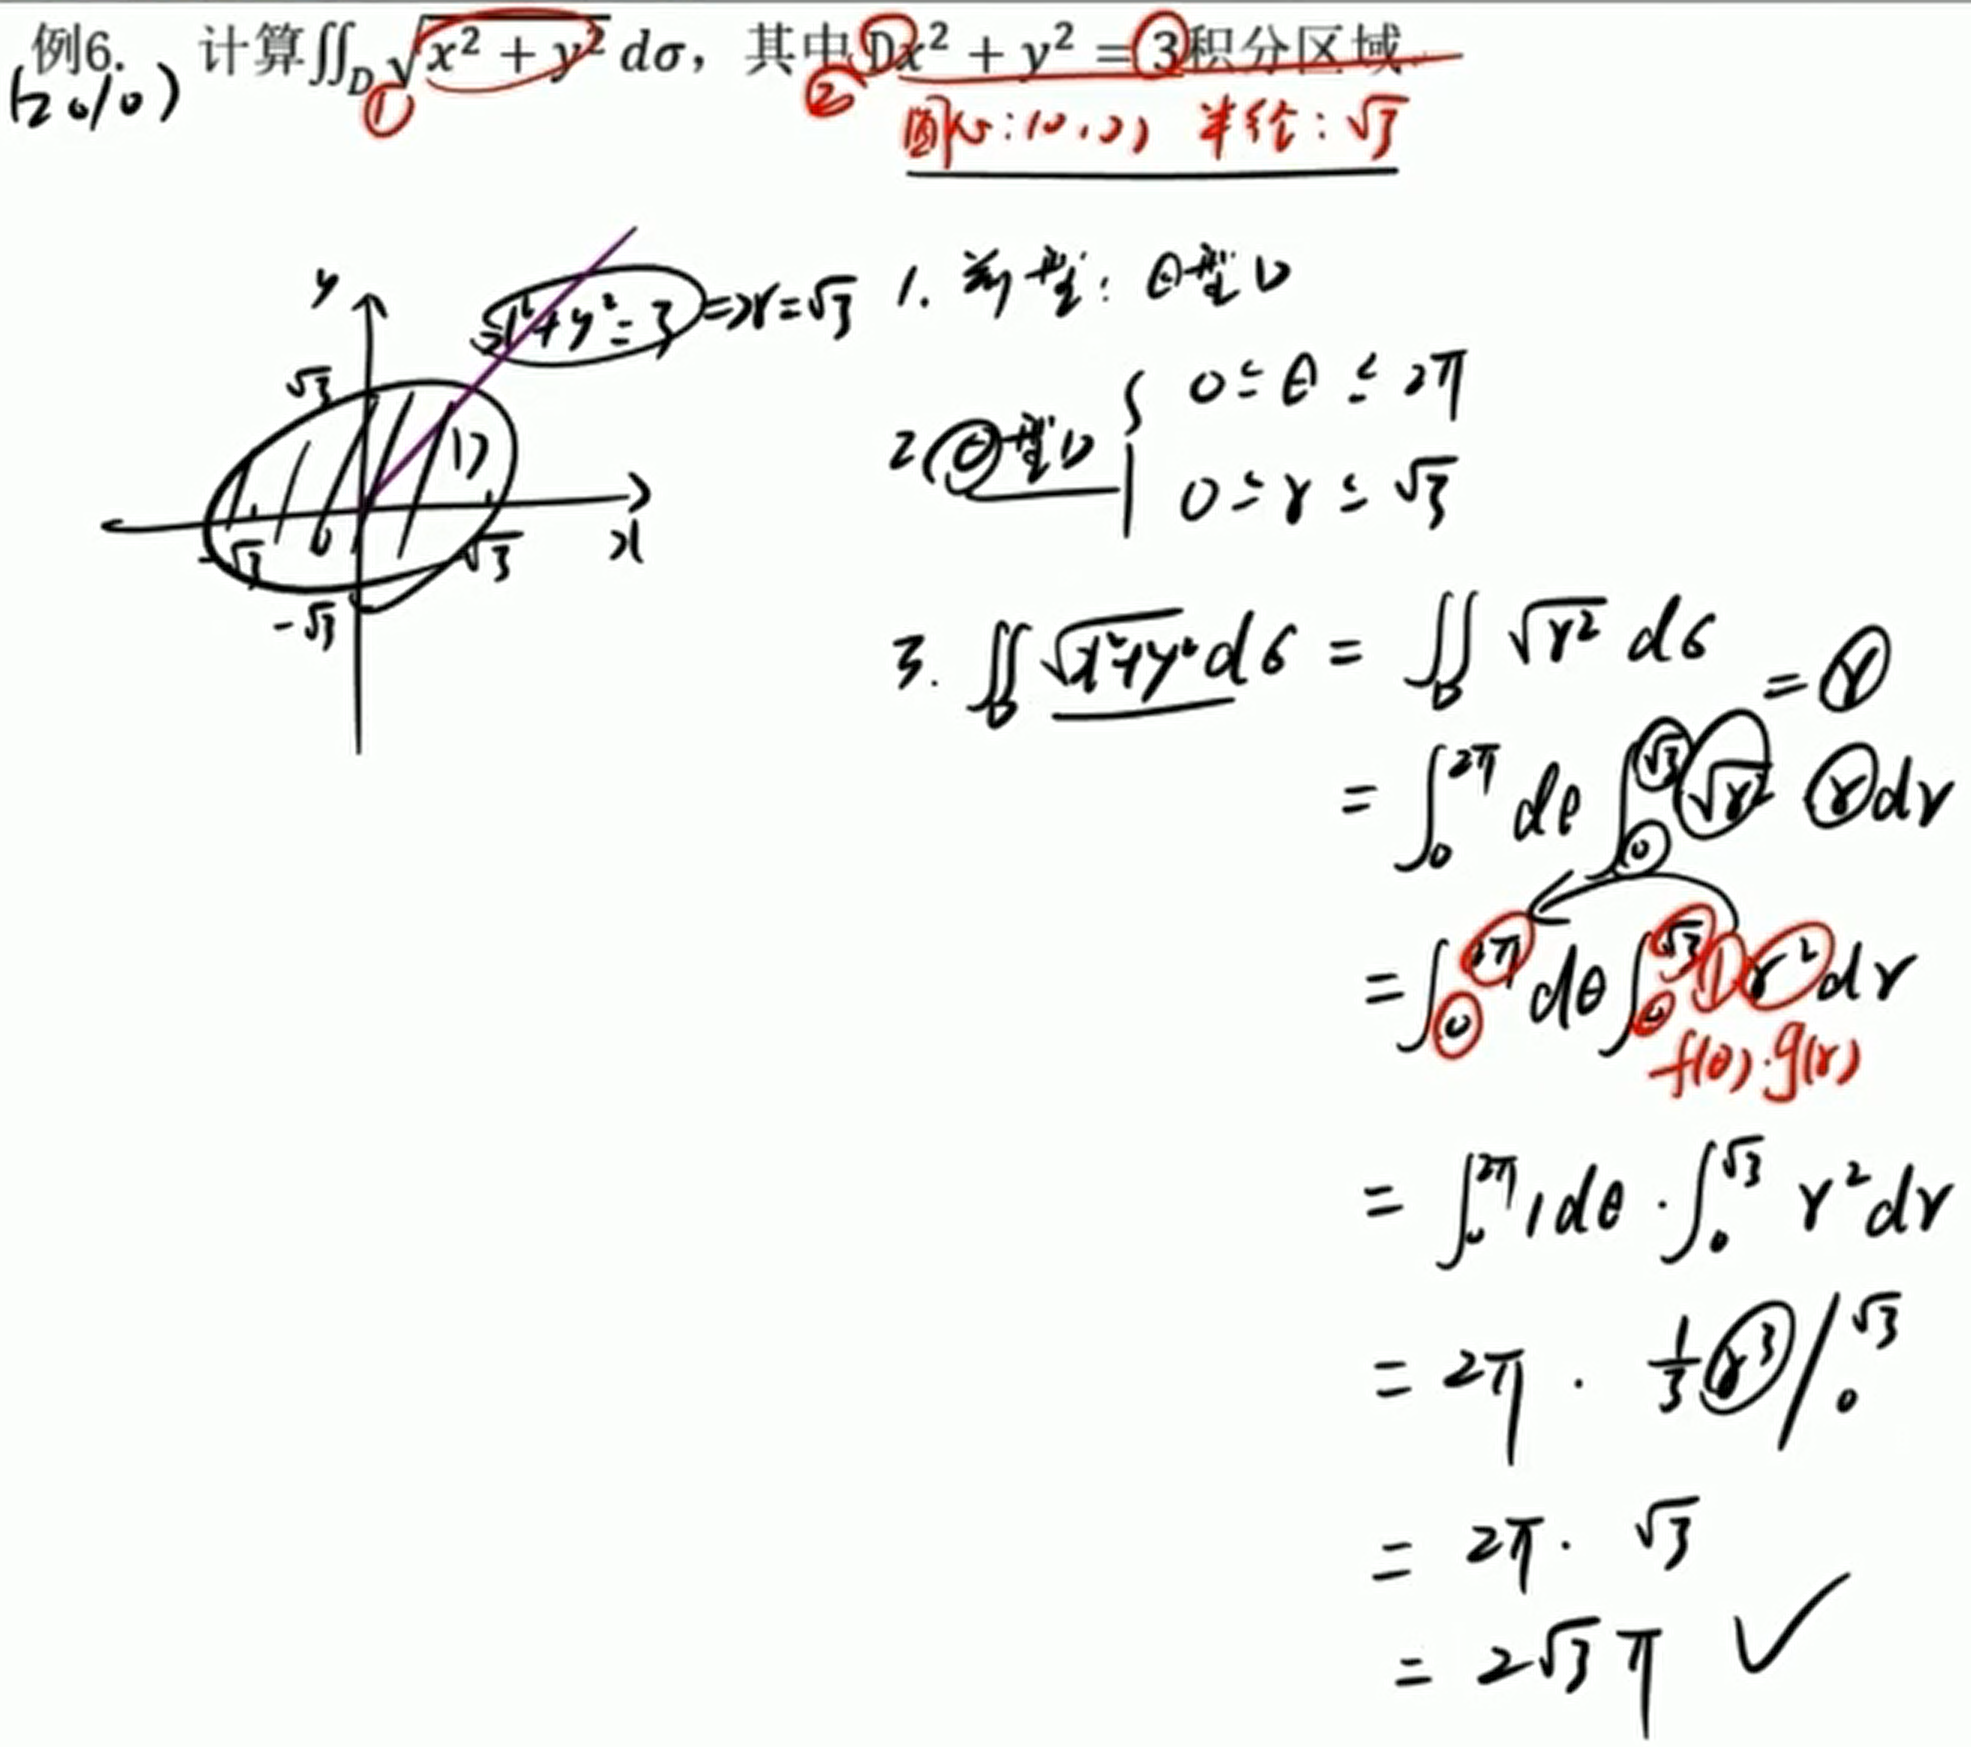 例6. 计算∬_D √(x² + y²) dσ，其中Dx² + y² = 3积分区域.
(20/0) ① ②
圆心:(0,0) 半径:√3
y
x²+y²=3 => r=√3
√3
D
-√3 0 √3 x
-√3
1. 判型: θ型D
2. θ型D { 0 ≤ θ ≤ 2π
0 ≤ r ≤ √3
3. ∬_D √(x²+y²) dσ = ∬_D √r² dσ = r
= ∫₀^{2π} dθ ∫₀^{√3} √r² r dr
= ∫₀^{2π} dθ ∫₀^{√3} 1 r² dr
f(θ)·g(r)
= ∫₀^{2π} 1 dθ · ∫₀^{√3} r² dr
= 2π · 1/3 r³ /₀^{√3}
= 2π · √3
= 2√3 π ✓